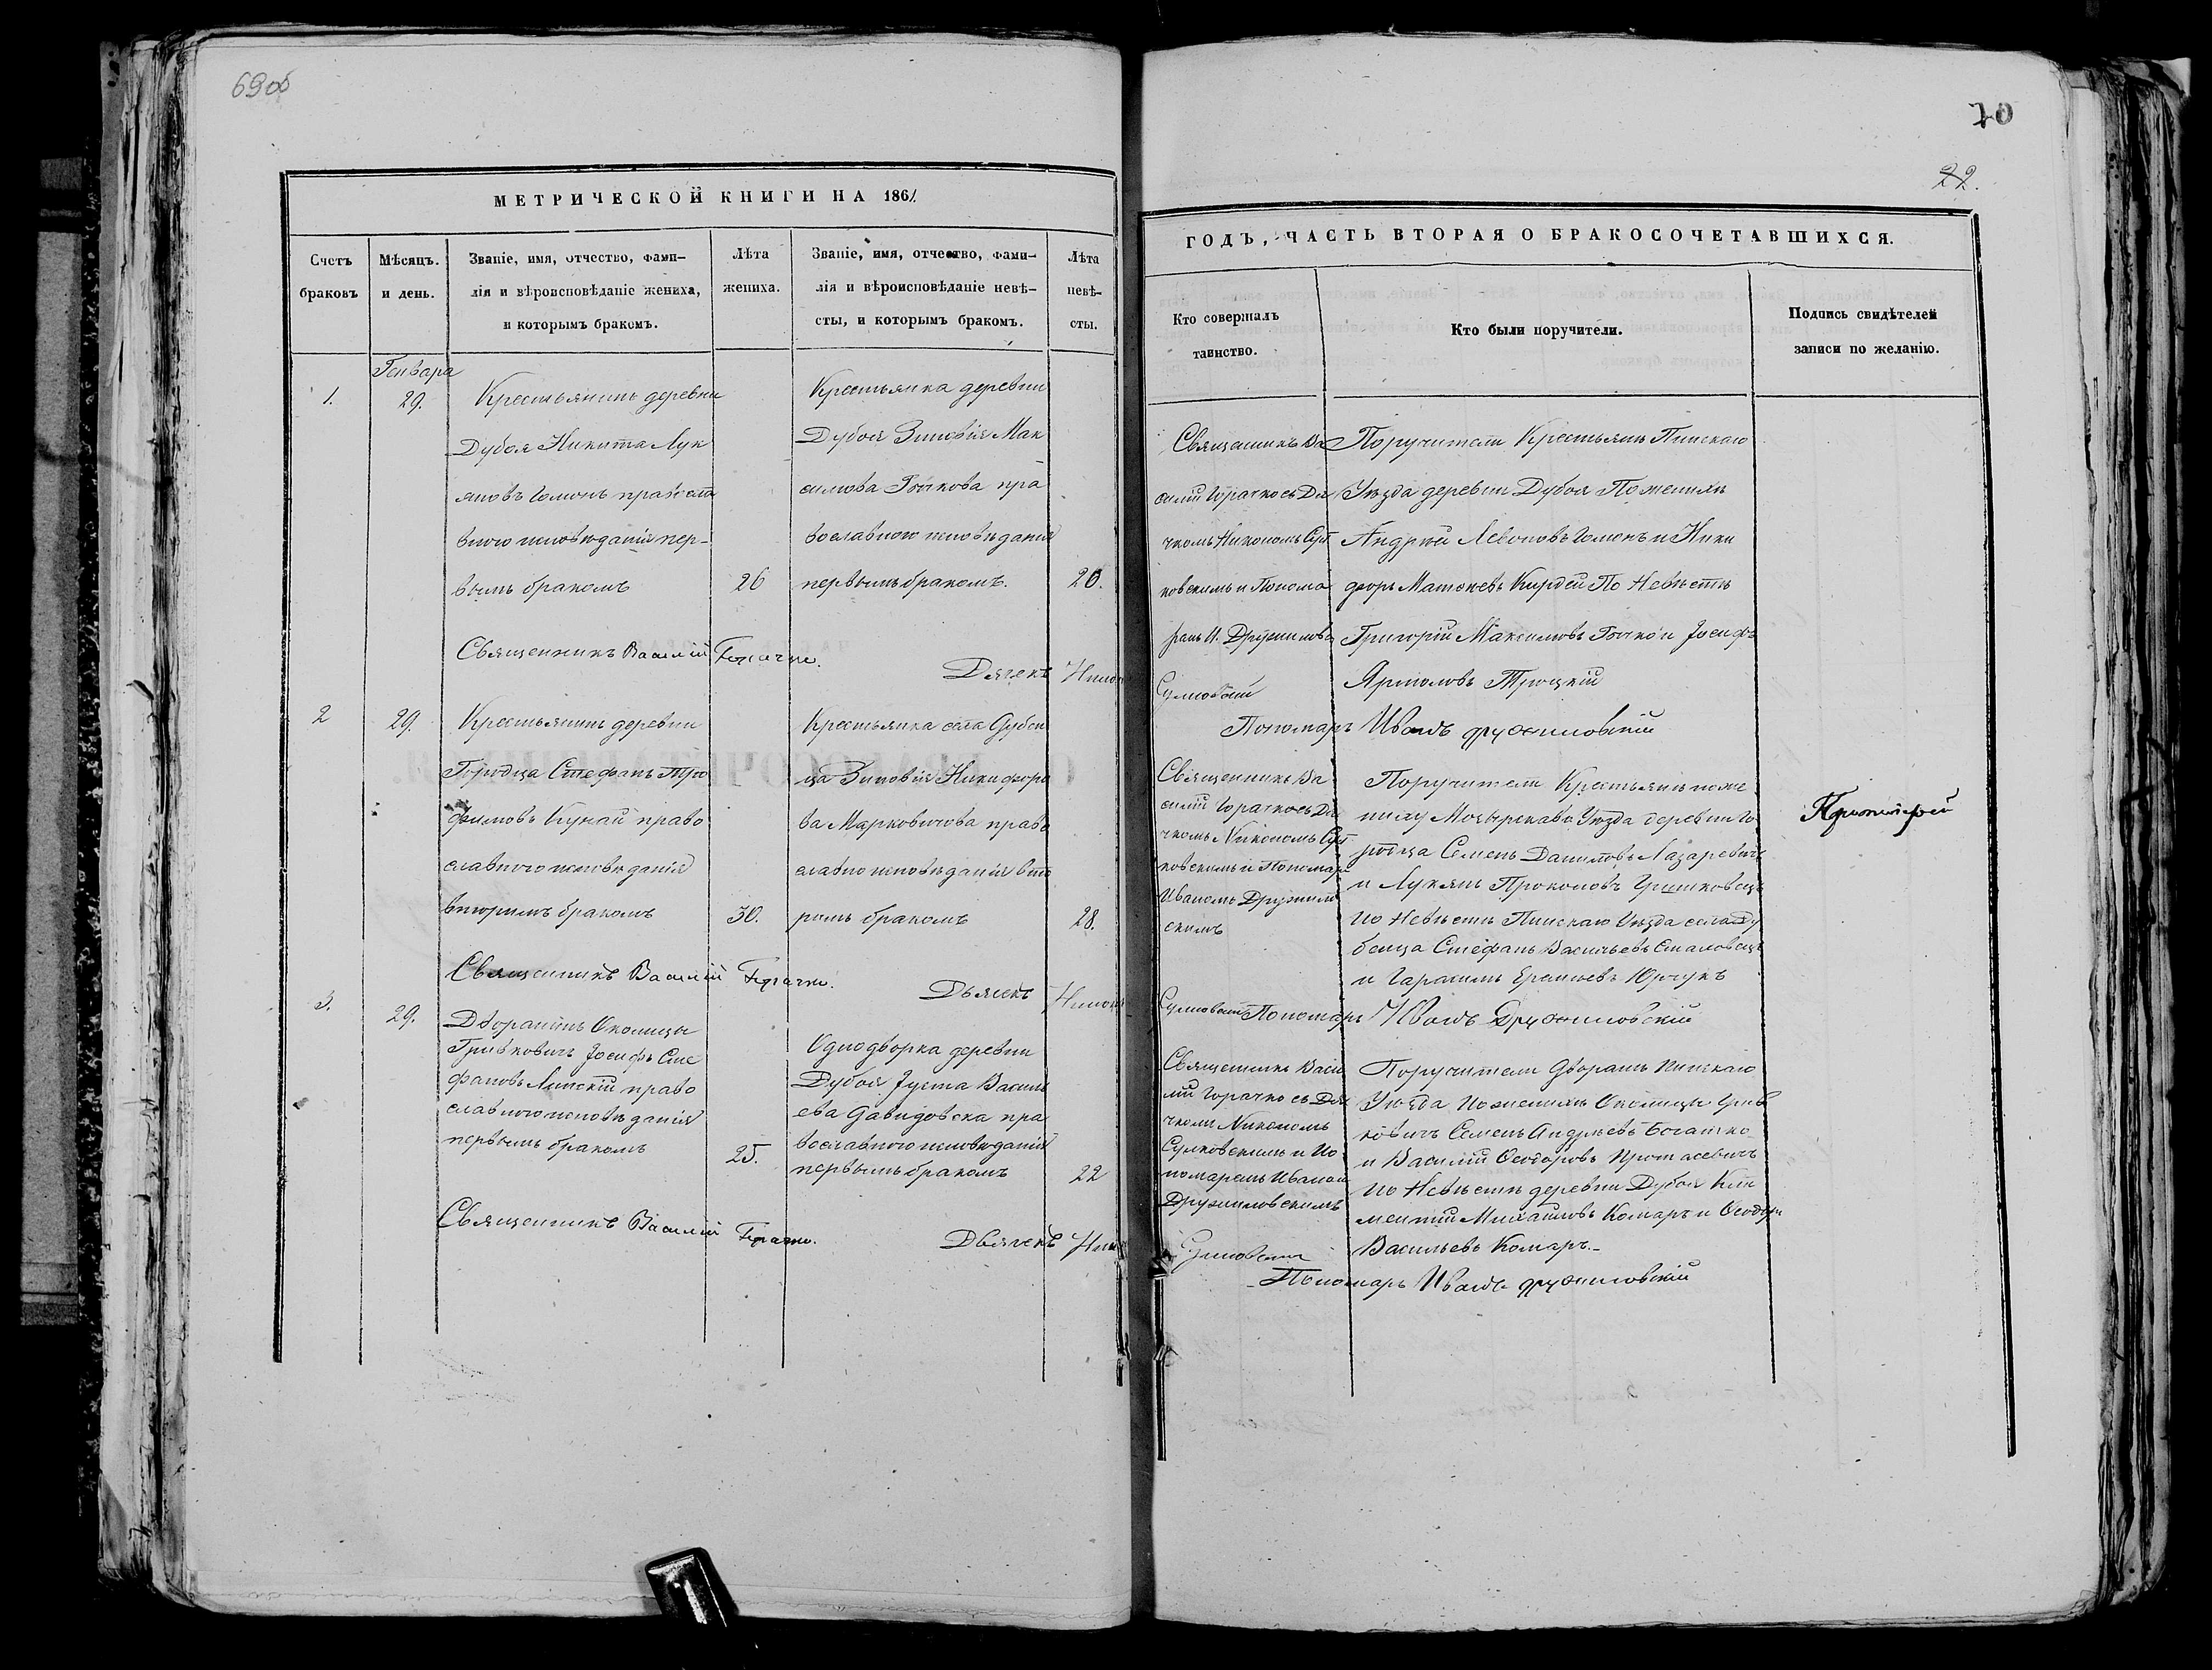 69об
МЕТРИЧЕСКОЙ КНИГИ НА 1861
Счетъ браковъ
Мѣсяцъ. и день.
Званіе, имя, отчество, фами-
лія и вѣроисповѣданіе жениха,
и которымъ бракомъ.
Лѣта
жениха.
Званіе, имя, отчество, фами-
лія и вѣроисповѣданіе невѣ-
сты, и которымъ бракомъ.
Лѣта
невѣ-
сты.
Генваря
1.
29.
Крестьянинъ деревни
Дубоя Никита Лук
яновъ Гомонъ правосла
вного исповѣданія пер-
вымъ бракомъ
26
Крестьянка деревни
Дубоя Зиновія Мак
симова Бычкова пра
вославного исповѣданія
первымъ бракомъ.
20.
Священникъ Василій Горачко.
Дячекъ Никон
2
29.
Крестьянинъ деревни
Городца Стефанъ Тро
фимовъ Кунай право
славного исповѣданія
вторимъ бракомъ
30.
Крестьянка села Дубен
ца Зиновія Никифоро
ва Марковичова право
славно исповѣданія вто
рымъ бракомъ
28.
Священникъ Василій Горачко.
Дьячекъ Никон
3.
29.
Дворанинъ Околицы
Гривковичъ Іосифъ Сте
фановъ Липскій право
славного исповѣданія
первымъ бракомъ
25.
Однодворка деревни
Дубоя Іуста Василь
ева Давидовска пра
вославного исповѣданія
первымъ бракомъ
22
Священникъ Василій Горачко.
Двячекъ Ник
70
22.
ГОДЪ, ЧАСТЬ ВТОРАЯ О БРАКОСОЧЕТАВШИХСЯ.
Кто совершалъ
таинство.
Кто были поручители.
Подпись свидѣтелей
записи по желанію.
Священникъ Ва
силій Горачко съ Дя
чкомъ Никономъ Сул
ковскимъ и Понома
ремъ И. Дружилов
Поручители Крестьянъ Пинскаго
Уѣзда деревни Дубоя По женихѣ
Андрей Левоновъ Гомонъ и Ники
форъ Матвѣевъ Кирдей По Невѣстѣ
Григорій Максимовъ Бычко и Іосифъ
Ярмоловъ Троцкій
Сулковскій
Пономарь Иванъ Дружиловскій
Священникъ Ва
силій Горачко съ Дя
чкомъ Никономъ Сул
ковскимъ и Пономаре
Иваномъ Дружилов
скимъ
Поручители Крестьянъ поже
ниху Мозырскаво Уѣзда деревни Го
родца Семенъ Даниловъ Лазаревичъ
и Лукянъ Прокоповъ Гришковецъ
по Невѣстѣ Пинскаго Уѣзда села Ду
бенца Стефанъ Васильевъ Стаховецъ
и Гарасимъ Еремѣевъ Юрчукъ
Сулковскій Пономарь Иванъ Дружиловскій
Священникъ Васи
лій Горачко съ Дя
чкомъ Никономъ
Сулковскимъ и По
номаремъ Иваном
Дружиловскимъ
Поручители Дворанъ Пинскаго
Уѣзда по женихѣ Околицы Грив
ковичъ Семенъ Андрѣевъ Богатко
и Василій Ѳеодоровъ Протасевичъ
по Невѣстѣ деревни Дубоя Кли
ментій Михайловъ Комаръ и Ѳеодоръ
Васильевъ Комаръ.
Сулковскій
Пономарь Иванъ Дружиловскій